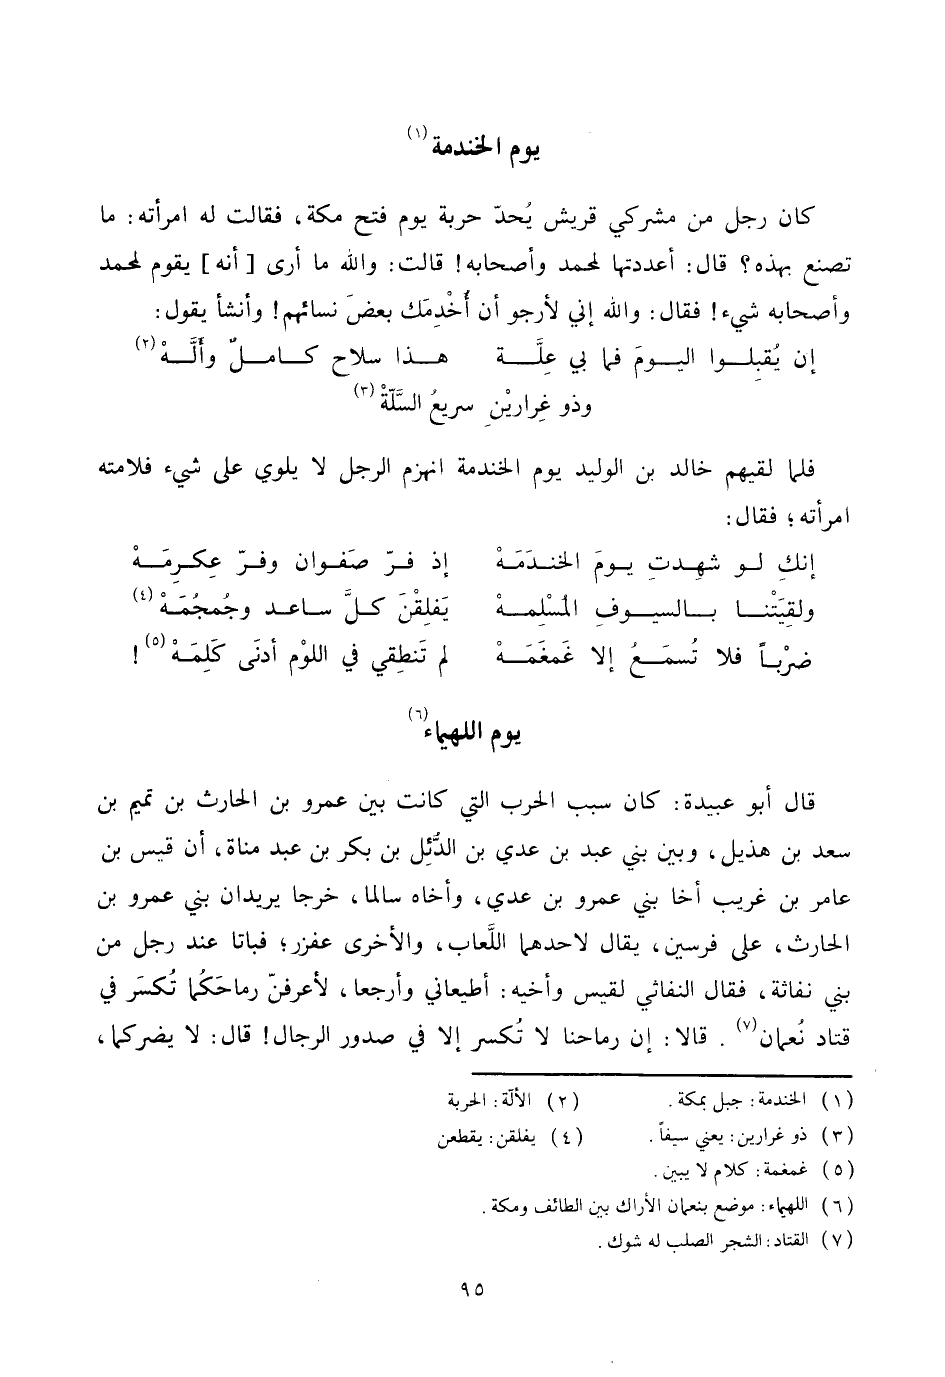 يوم الخندمة (١)
كان رجل من مشركي قريش يُحدّ حربة يوم فتح مكة، فقالت له امرأته: ما
تصنع بهذه؟ قال: أعددتها لمحمد وأصحابه! قالت: والله ما أرى [أنه] يقوم لمحمد
وأصحابه شيء! فقال: والله إني لأرجو أن أُخْدِمَك بعضَ نسائهم! وأنشأ يقول:
إن يُقبِلـوا اليـومَ فما بي عِلَّـة هـذا سلاح كـامـلٌ وأَلَّـهْ (٢)
وذو غِرارَيْنِ سريعُ السَّلّهْ (٣)
فلما لقيهم خالد بن الوليد يوم الخندمة انهزم الرجل لا يلوي على شيء فلامته
امرأته؛ فقال:
إنكِ لـو شهـدتِ يـومَ الخنـدَمَـهْ إذ فـرّ صَفـوان وفـرّ عِكـرِمَـهْ
ولقِيَتْنـا بـالسيـوفِ المُسْلِمـهْ يَفلِقْنَ كـلَّ سـاعـد وجُمجُمَـهْ (٤)
ضرْبـاً فلا تُسمَـعُ إلا غَمغَمَـهْ لم تَنطِقي في اللوْم أدنَى كَلِمَـهْ (٥)!
يوم اللهياء (٦)
قال أبو عبيدة: كان سبب الحرب التي كانت بين عمرو بن الحارث بن تميم بن
سعد بن هذيل، وبين بني عبد بن عدي بن الدُّئِل بن بكر بن عبد مناة، أن قيس بن
عامر بن غريب أخا بني عمرو بن عدي، وأخاه سالما، خرجا يريدان بني عمرو بن
الحارث، على فرسين، يقال لاحدهما اللَّعاب، والأخرى عفزر؛ فباتا عند رجل من
بني نفاثة، فقال النفاثي لقيس وأخيه: أطيعاني وأرجعا، لأعرفنّ رماحَكُما تُكسَر في
قتاد نُعمان (٧). قالا: إن رماحنا لا تُكسر إلا في صدور الرجال! قال: لا يضركما،
(١) الخندمة: جبل بمكة. (٢) الألّة: الحربة
(٣) ذو غرارين: يعني سيفاً. (٤) يفلقن: يقطعن
(٥) غمغمة: كلام لا يبين.
(٦) اللهياء: موضع بنعمان الأراك بين الطائف ومكة.
(٧) القتاد: الشجر الصلب له شوك.
٩٥